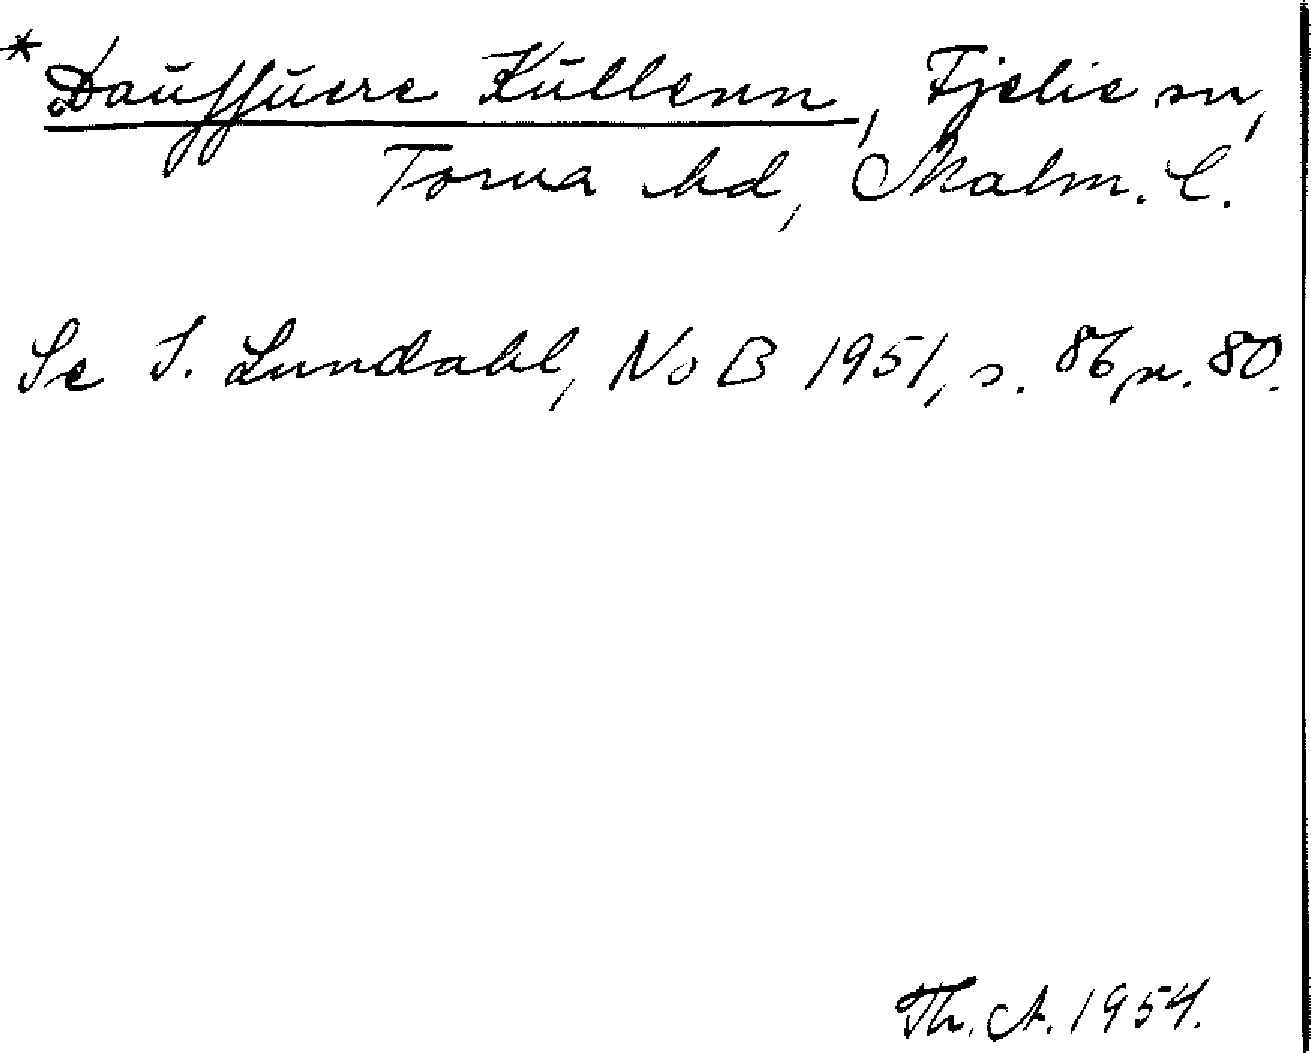 *Daŭffŭere Kŭllenn, Fjelie sn,
Torna hd, Malm. l.
Se I. Lundahl, NoB 1951, s. 86 n. 80.
Th. A. 1954.